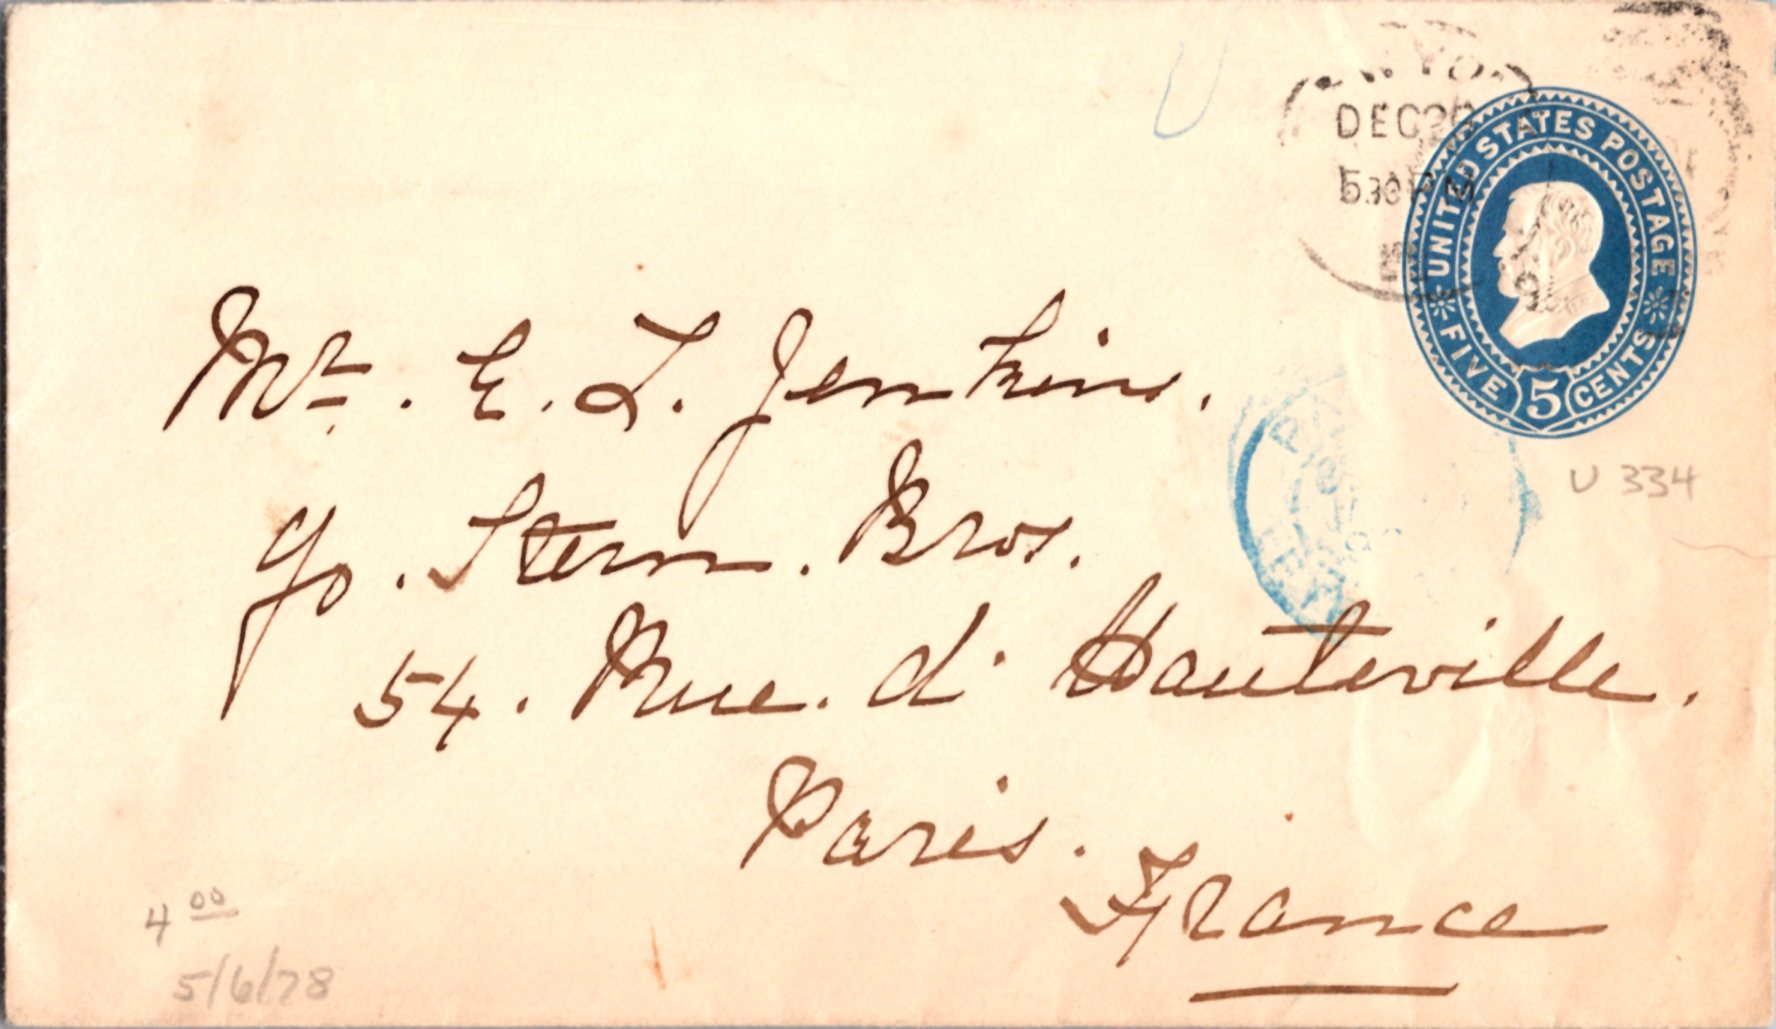 DEC
530
UNITED STATES POSTAGE
FIVE 5 CENTS
U 334
Mr. E. L. Jenkins.
c/o. Stern. Bros.
54. Rue. d' Hauteville.
Paris.
France
4 00
5/6/78